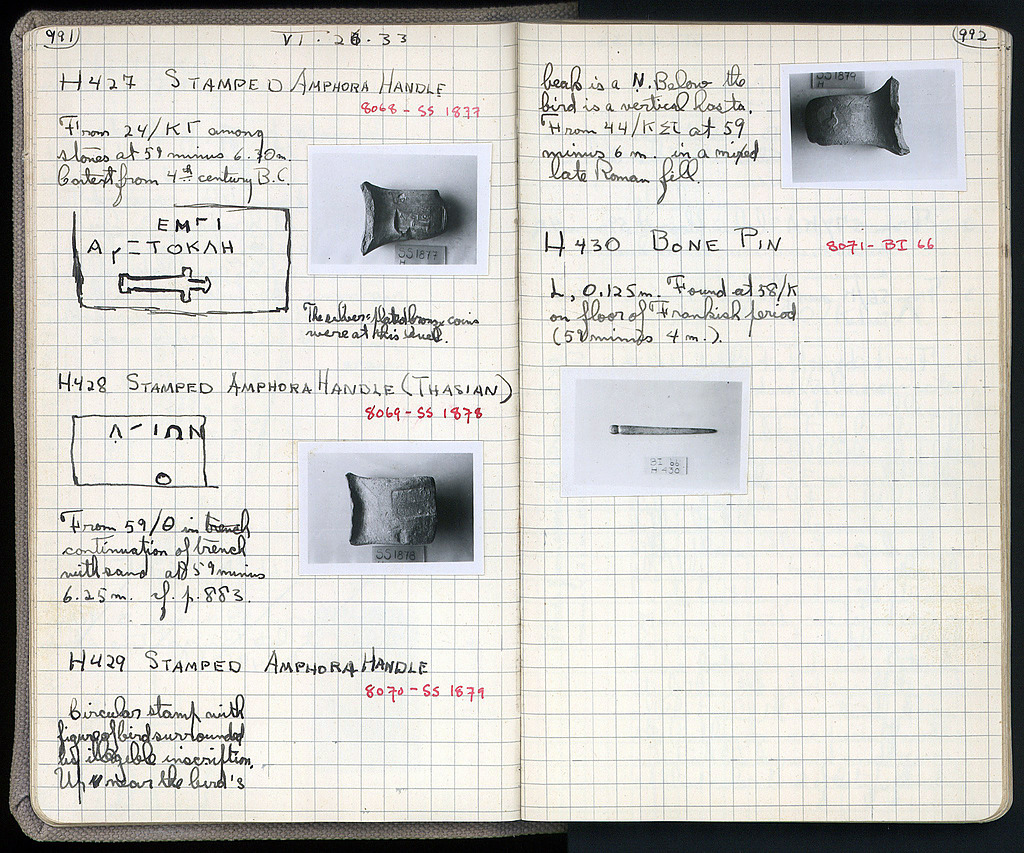 991
VI · 26 · 33
H427 STAMPED AMPHORA HANDLE
8068 - SS 1877
From 24/ΚΓ among
stones at 59 minus 6.70m.
Context from 4th century B.C.
SS 1877
H
ΕΜΓΙ
ΤΟΚΛΗ
The silver-plated bronze coins
were at this level.
H428 STAMPED AMPHORA HANDLE (THASIAN)
8069 - SS 1878
ΙΩΝ
SS 1878
From 59/Θ in trench
continuation of trench
with sand at 59 minus
6.25m. cf. p. 883.
H429 STAMPED AMPHORA HANDLE
8070 - SS 1879
Circular stamp with
figure of bird surrounded
by illegible inscription.
Up near the bird's
992
beak is a N. Below the
bird is a vertical hasta.
From 44/ΚΣΤ at 59
minus 6 m. in a mixed
late Roman fill.
SS 1879
H
H430 BONE PIN
8071 - BI 66
L, 0.125m. Found at 58/Κ
on floor of Frankish period
(59 minus 4 m.).
BI 66
H 430